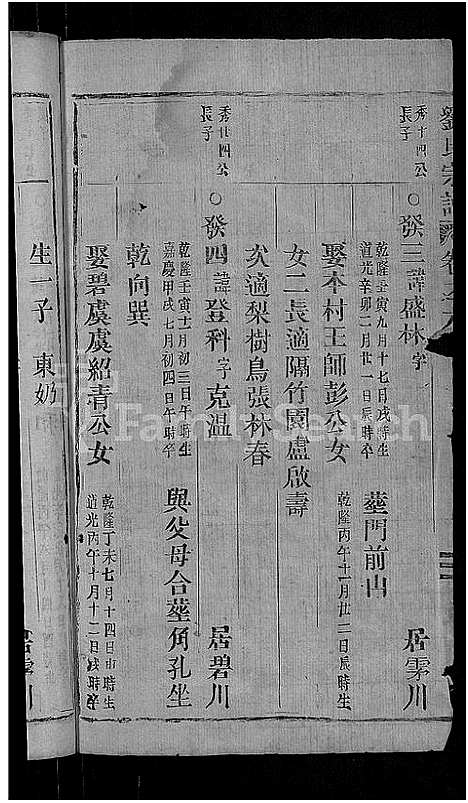 劉氏宗譜 卷之八
秀十四公長子 ○發三諱盛林字 乾隆壬寅九月十七日戌時生 道光辛卯二月廿一日辰時卒 塟門前山 居雩川
娶本村王師彭公女 乾隆丙午十一月廿二日辰時生
女二長適隔竹園盧啟壽
次適梨樹鳥張林春
秀廿四公長子 ○發四諱登科字克温 居碧川
乾隆壬寅十一月初三日午時生 嘉慶甲戌七月初四日午時卒 與父母合塟角孔坐
乾向巽
娶碧虞虞紹青公女 乾隆丁未七月十四日申時生 道光丙午十月十二日戌時卒
生一子 東奶
FamilySearch